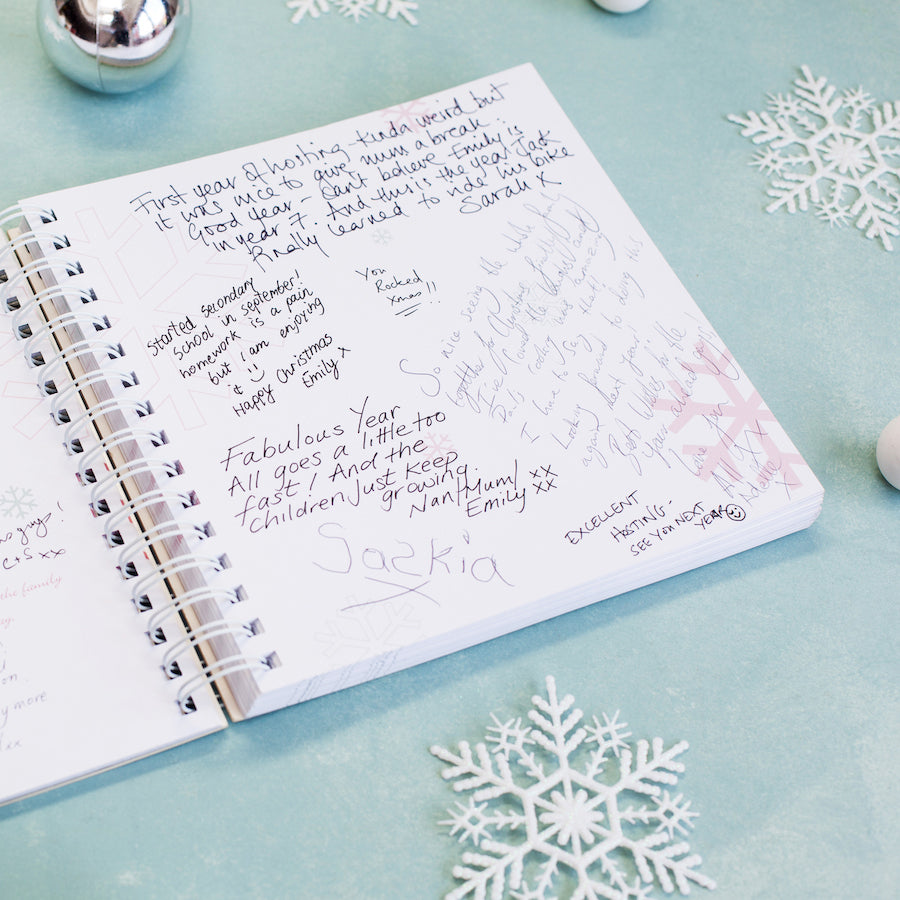 First year of hosting - kinda weird but
it was nice to give mum a break.
Good year - can't believe Emily is
in year 7. And this is the year Jack
finally learned to ride his bike
Sarah X
Started secondary
school in september!
homework is a pain
but I am enjoying
it
Happy Christmas
Emily x
You
Rocked
Xmas!!
So nice seeing the whole family
together for Christmas finally!
I've
Dad's was amazing
I have to say that!
Looking forward to doing this
again next year!!
Best wishes for the
year ahead guys
All
Fabulous Year
All goes a little too
fast! And the
children just keep
growing.
Nan/Mum/
Emily xx
xx
EXCELLENT
HOSTING -
SEE YOU NEXT
YEAR
Saskia
X
guys!
xx
the family
y more
xx